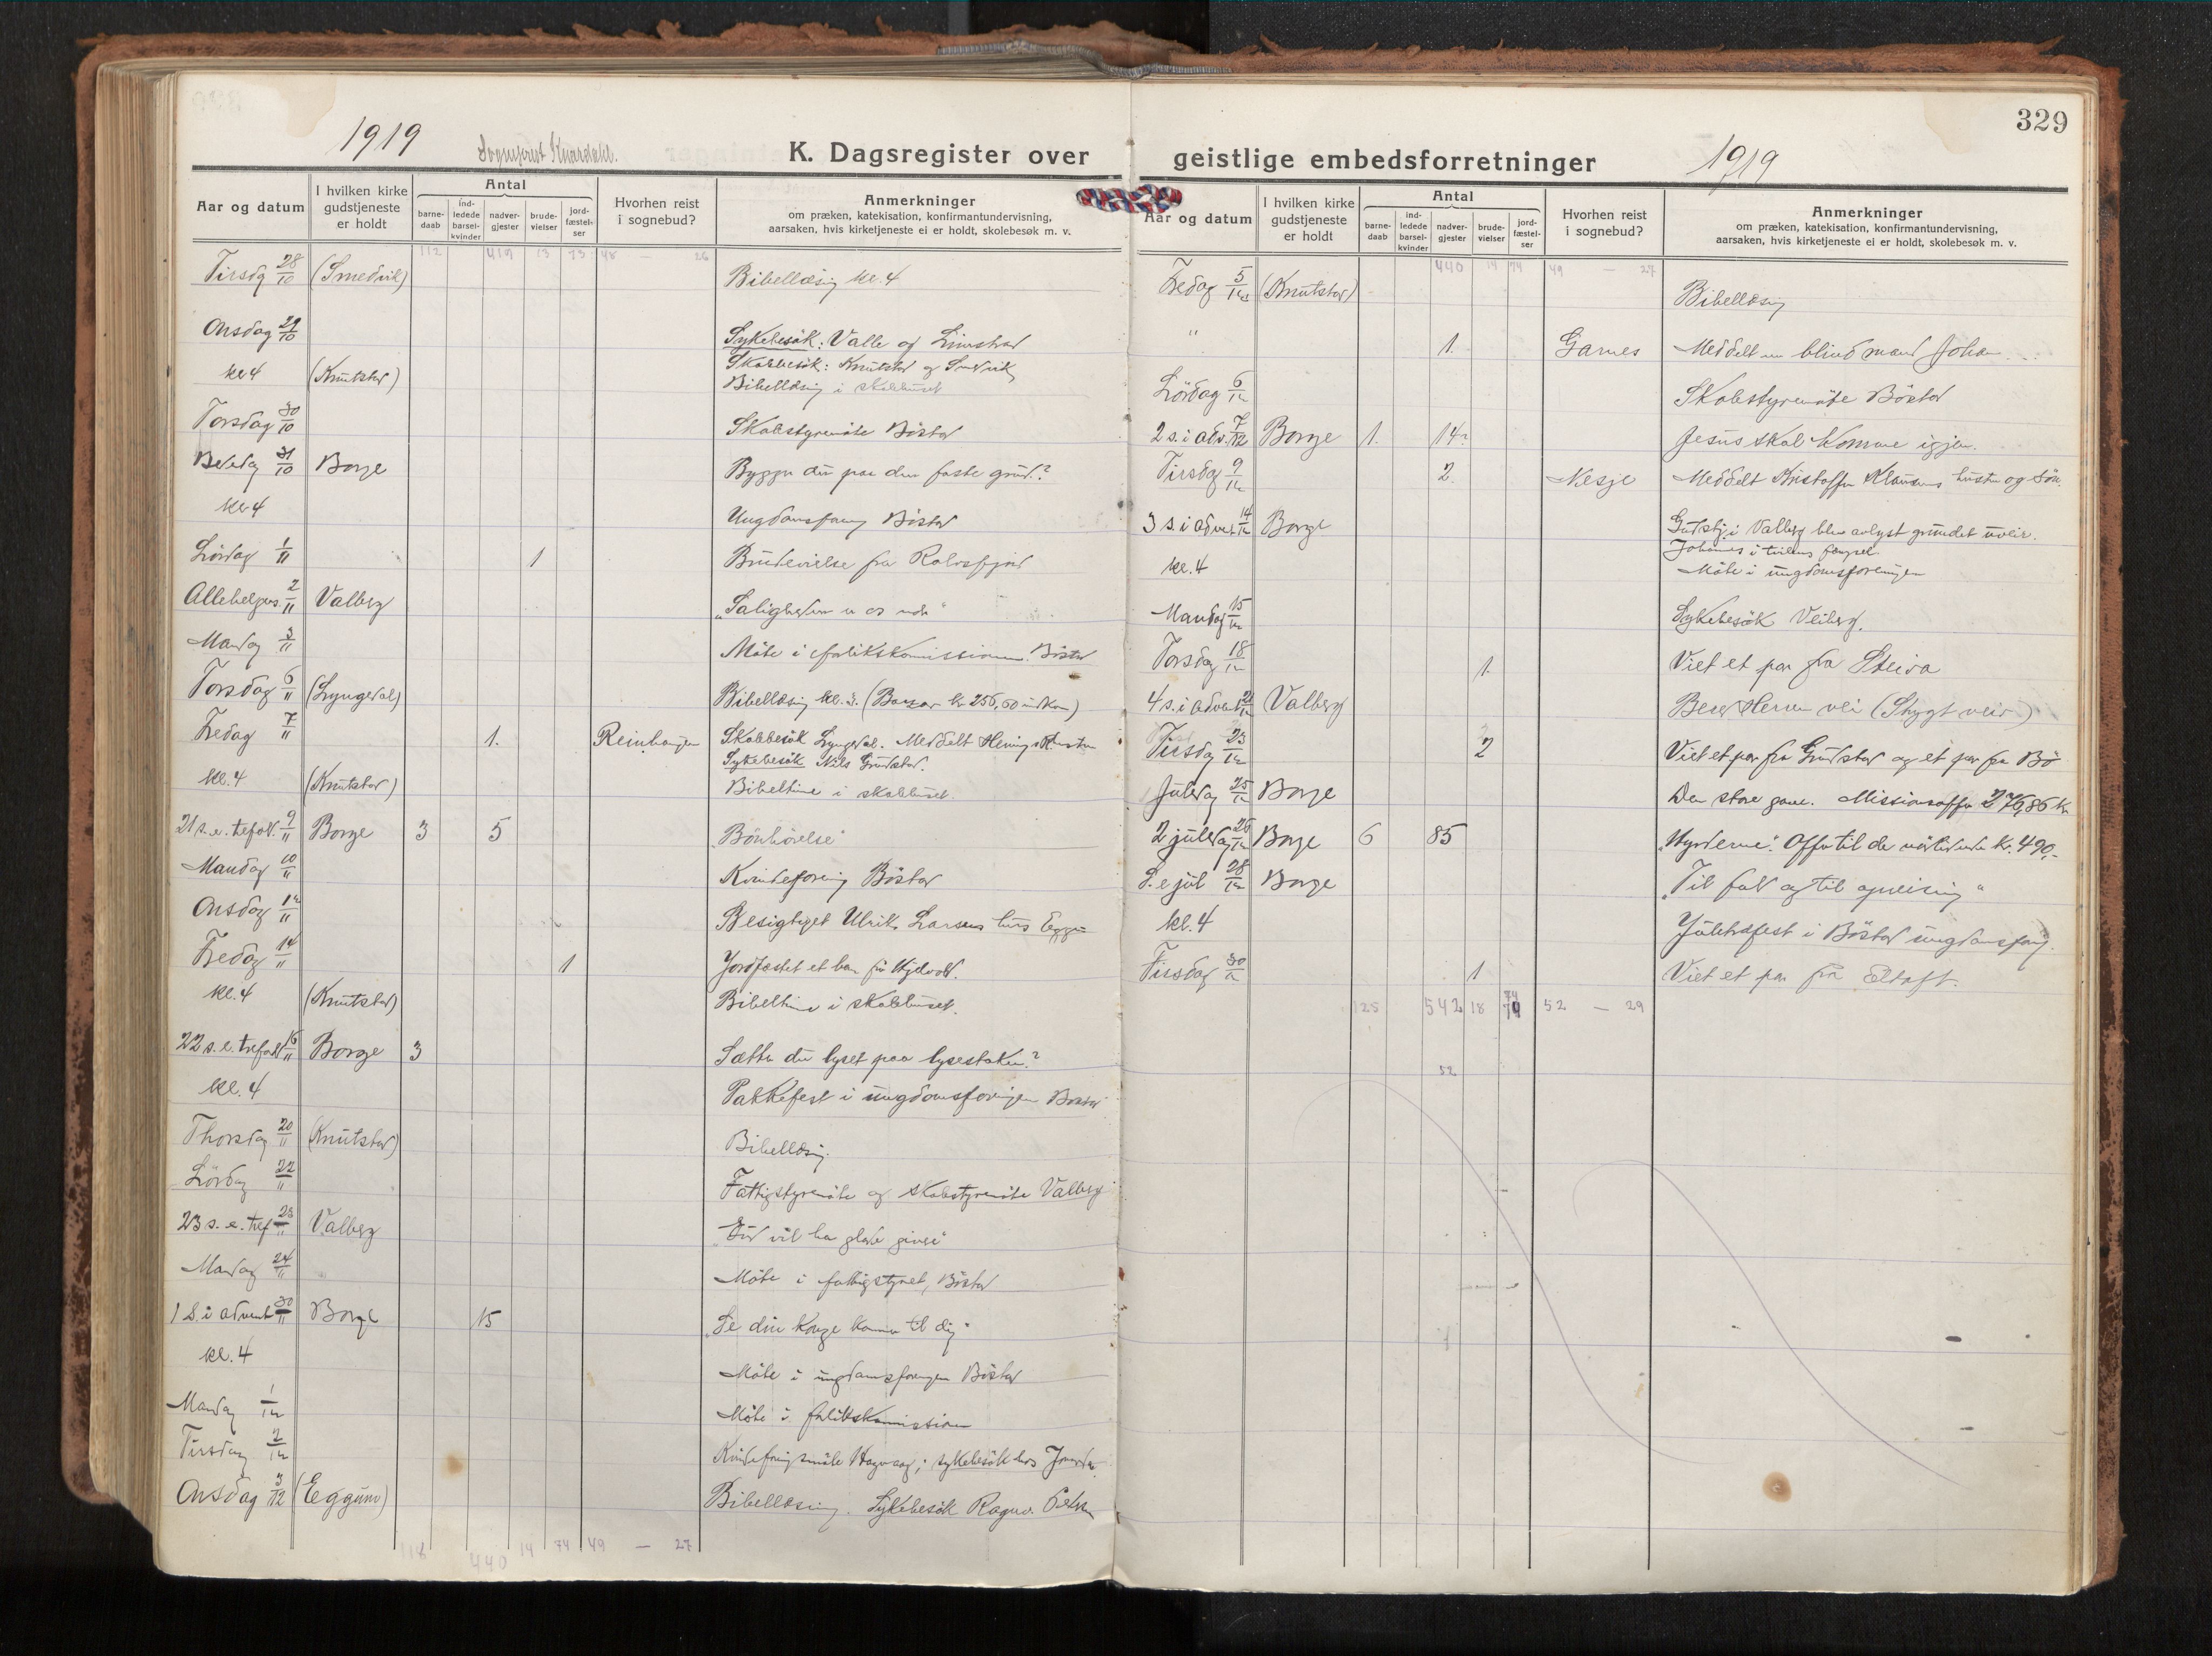 1919
Sogneprest Knardahl.
K. Dagsregister over
Aar og datum
I hvilken kirke gudstjeneste er holdt
Antal
barne-daab
ind-ledede barsel-kvinder
nadver-gjester
brude-vielser
jord-fæstel-ser
Hvorhen reist i sognebud?
Anmerkninger
om præken, katekisation, konfirmantundervisning,
aarsaken, hvis kirketjeneste ei er holdt, skolebesøk m. v.
112 419 13 73 48 — 26
Tirsdg 28/10 (Smedvik) Bibellæsng kl. 4
Onsdag 29/10 Sykebesök: Valle og Limstrad
Skolebesök: Knutstad og Smedvik
kl 4 (Knutstad) Bibellæsng i skolehuset
Torsdag 30/10 Skolestyremöte Böstad
Bededag 31/10 Borge Bygger du paa den faste grund?
kl 4 Ungdomsforng Böstad
Lördag 1/11 1 Brudevielse fra Rolvsfjord
Allehelgens. 2/11 Valberg "Saligheden er os nær"
Mandag 3/11 Möte i forlikskommissionen. Böstad
Torsdag 6/11 (Lyngedal) Bibellæsng kl. 3. (Basar kr 256,60 indkom)
Fredag 7/11 1. Reinhaugen Skolebesök Lyngedal. Meddelt Hennigs Hustru
Sykebesök Nils Grundstad.
kl. 4 (Knutstad) Bibeltime i skolehuset.
21 s. e. trefold. 9/11 Borge 3 5 "Bönhörelse"
Mandag 10/11 Kvindeforeng Böstad
Onsdag 12/11 Besigtiget Ulrik Larsens hus Eggum
Fredag 14/11 1 Jordfæstet et barn fra Kjelvold.
kl. 4 (Knutstad) Bibeltime i skolehuset.
22 s. e. trefold 16/11 Borge 3 Sætter du lyset paa lysestaken?
kl. 4 Pakkefest i ungdomsforeningen Böstad
Thorsdag 20/11 (Knutstad) Bibellæsng.
Lördag 22/11 Fattigstyremöte og skolestyremöte Valberg
23 s. e. tref 23/11 Valberg "Gud vil ha glade givere"
Mandag 24/11 Möte i fattigstyret, Böstad
1 S. i advent 30/11 Borge 15 "Se din Konge kommer til dig"
kl. 4 Möte i ungdomsforeningen Böstad
Mandag 1/12 Möte i forlikskommissionen
Tirsdag 2/12 Kvindeforengsmöte Hagvaag; sykebesök hos
Onsdag 3/12 (Eggum) Bibellæsning. Sykebesök Ragnv. Peters
118 440 14 74 49 — 27
329
geistlige embedsforretninger
1919
Aar og datum
I hvilken kirke gudstjeneste er holdt
Antal
barne-daab
ind-ledede barsel-kvinder
nadver-gjester
brude-vielser
jord-fæstel-ser
Hvorhen reist i sognebud?
Anmerkninger
om præken, katekisation, konfirmantundervisning,
aarsaken, hvis kirketjeneste ei er holdt, skolebesøk m. v.
440 14 74 49 — 27
Fredag 5/12 (Knutstad) Bibellæsng
" 1. Garnes Meddelt en blind mand Johan ...
Lördag 6/12 Skolestyremöte Böstad
2 s. i adv. 7/12 Borge 1. 14. Jesus skal komme igjen.
Tirsdg 9/12 2. Nesje Meddelt Kristoffer Klausens hustru og sön.
3 s. i advent 14/12 Borge Gudstj. i Valberg blev avlyst grundet uveir.
Johannes i tvilens fængsel.
kl. 4 Möte i ungdomsforeningen
Mandag 15/12 Sykebesök Veiberg.
Torsdag 18/12 1. Viet et par fra Steira
4 s. i advent 21/12 Valberg Bered Herren vei (Stygt veir)
Tirsdg 23/12 2 Viet et par fra Grundstad og et par fra Bö
Juledag 25/12 Borge Den store gave. Missionsoffer 276,86 kr
2 juledag 26/12 Borge 6 85 "Hyrderne". Offer til de nödlidende kr. 490,-
S. e jul 28/12 Borge "Til fald og til opreisning"
kl. 4 Juletrefest i Böstad ungdomsforng.
Tirsdag 30/12 1 Viet et par fra Eltoft.
125 542 18 74 74 52 — 29
52